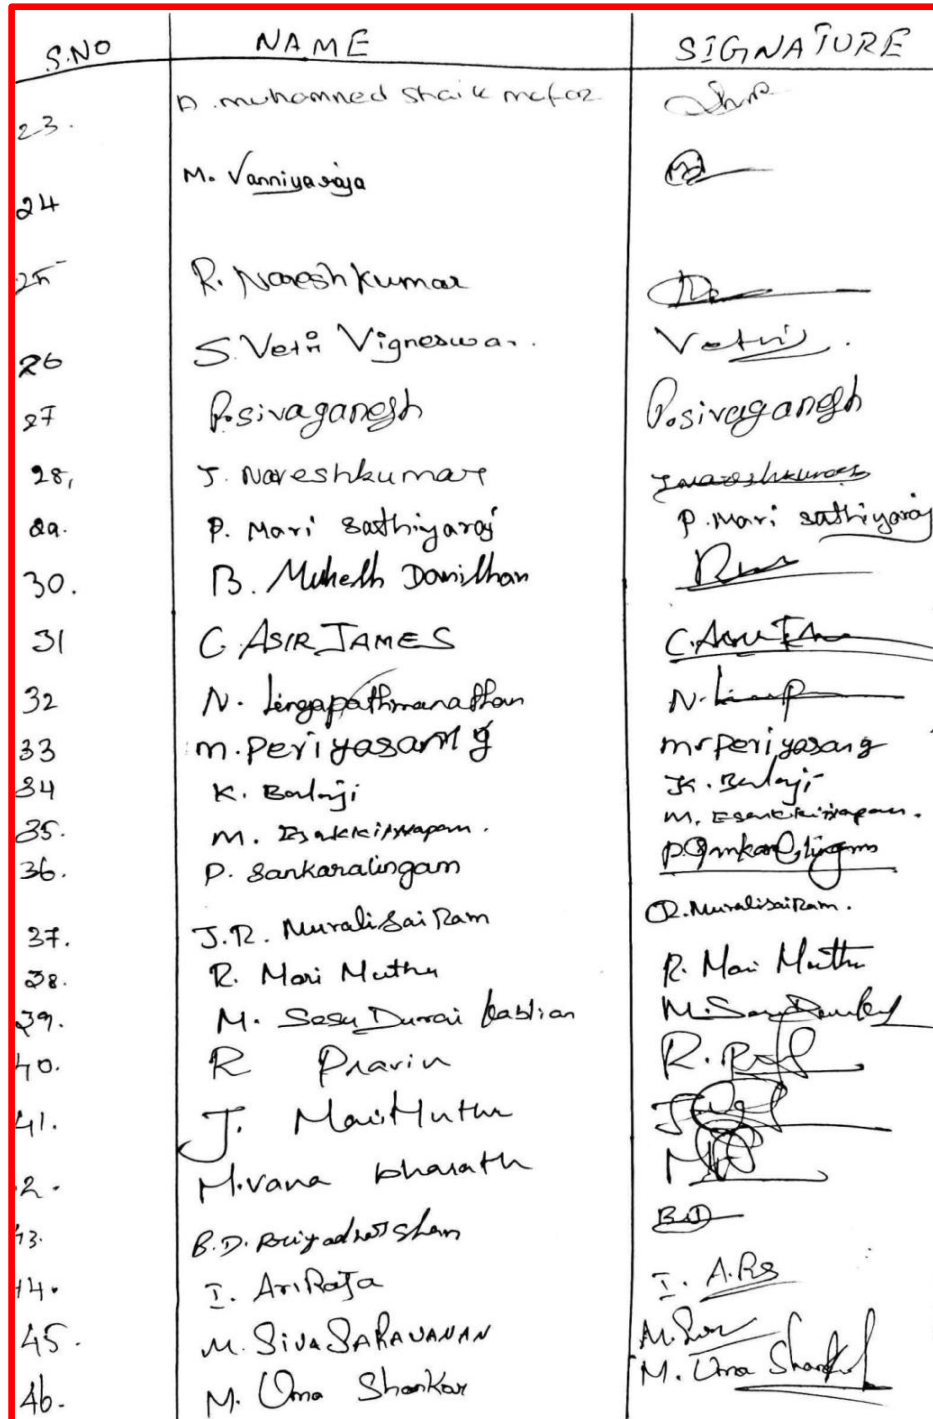 S.NO NAME SIGNATURE
23. A. muhamned Shaik
24 M. Vanniyaraja
25 R. Nareshkumar
26 S. Vetri Vigneswar. Vetri.
27 P.sivaganesh P.sivaganesh
28, J. Nareshkumar Jnareshkumar
29. P. Mari Sathiyaraj P. Mari Sathiyaraj
30. B. Mukesh
31 C. ASIR JAMES
32 N. Lingapathmanathan
33 m.periyasamy
34 K. Balaji K. Balaji
35. M. Esakkiiyyapan. M. Esakkiiyyapan.
36. P. Sankaralingam P.Sankaralingam
37. J.R. MuraliSaiRam J.R.MuraliSaiRam.
38. R. Mari Muthu R. Mari Muthu
39. M. Sasu Durai
40. R Pravin
41. J. MariMuthu
2. M.vana bharath
43. B.D. Priyadharshan B.D
44. I. AriRaja I. A.Ra
45. M. SIVASARAVANAN
46. M. Uma Shankar M. Uma Shankar